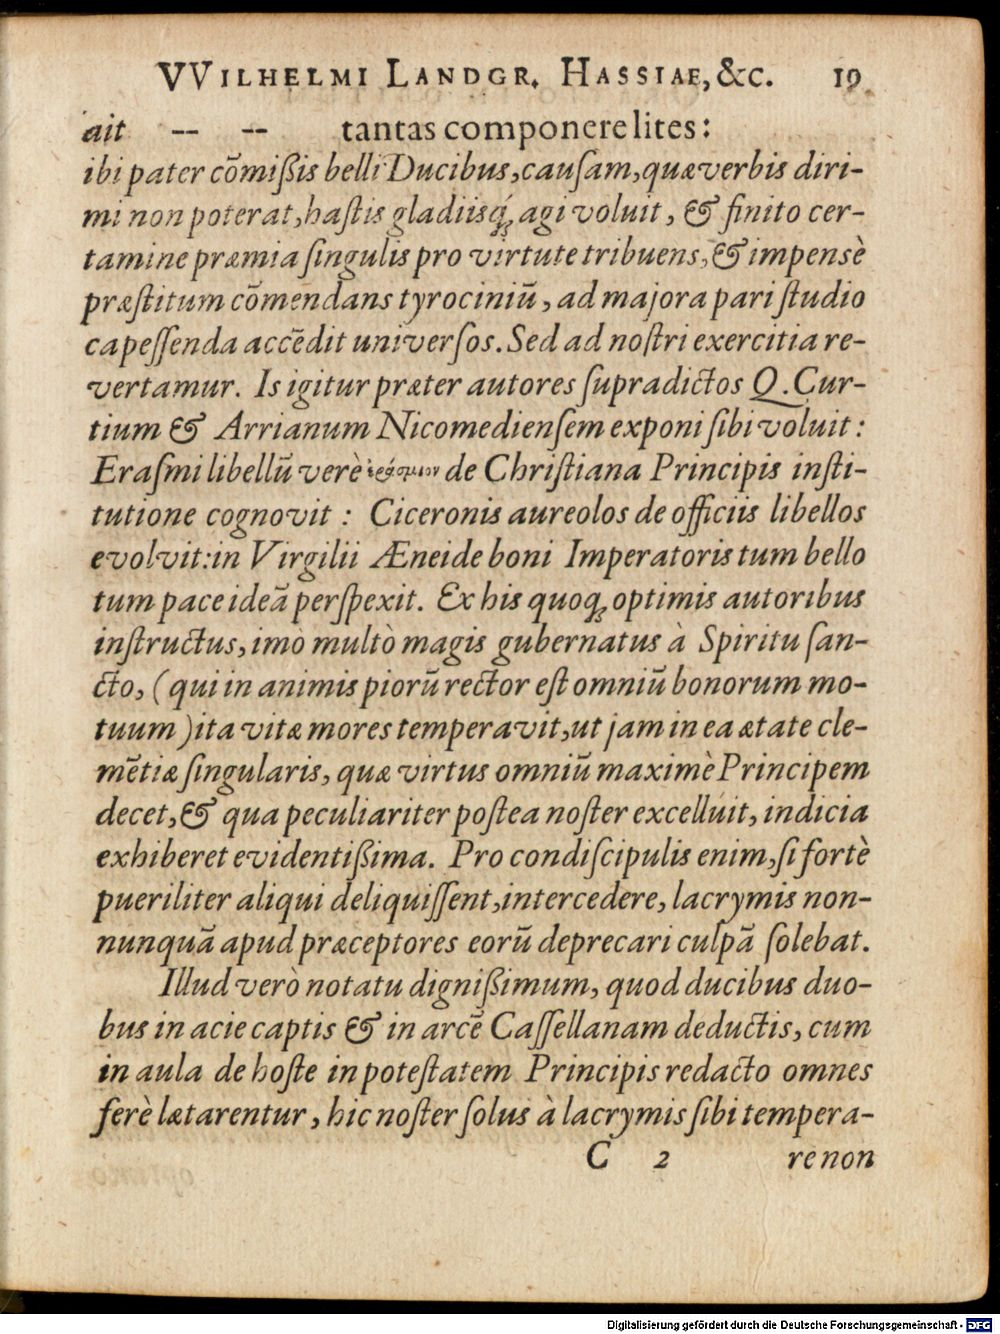 VVILHELMI LANDGR. HASSIAE, &C. 19
ait -- -- tantas componere lites:
ibi pater cõmißis belli Ducibus, cauſam, quæ verbis diri-
mi non poterat, haſtis gladiisq́; agi voluit, & finito cer-
tamine præmia ſingulis pro virtute tribuens, & impensè
præſtitum cõmendans tyrociniũ, ad majora pari ſtudio
capeſſenda accẽdit univerſos. Sed ad noſtri exercitia re-
vertamur. Is igitur præter autores ſupradictos Q. Cur-
tium & Arrianum Nicomedienſem exponi ſibi voluit:
Eraſmi libellũ verè ἐράσμιον de Chriſtiana Principis inſti-
tutione cognovit: Ciceronis aureolos de officiis libellos
evolvit: in Virgilii Æneide boni Imperatoris tum bello
tum pace ideã perſpexit. Ex his quoq; optimis autoribus
inſtructus, imò multò magis gubernatus à Spiritu ſan-
cto, (qui in animis piorũ rector eſt omniũ bonorum mo-
tuum) ita vitæ mores temperavit, ut jam in ea ætate cle-
mẽtiæ ſingularis, quæ virtus omniũ maximè Principem
decet, & qua peculiariter poſtea noſter excelluit, indicia
exhiberet evidentißima. Pro condiſcipulis enim, ſi fortè
pueriliter aliqui deliquiſſent, intercedere, lacrymis non-
nunquã apud præceptores eorũ deprecari culpã ſolebat.
Illud verò notatu dignißimum, quod ducibus duo-
bus in acie captis & in arcẽ Caſſellanam deductis, cum
in aula de hoſte in poteſtatem Principis redacto omnes
ferè lætarentur, hic noſter ſolus à lacrymis ſibi tempera-
C 2 re non
Digitalisierung gefördert durch die Deutsche Forschungsgemeinschaft - DFG